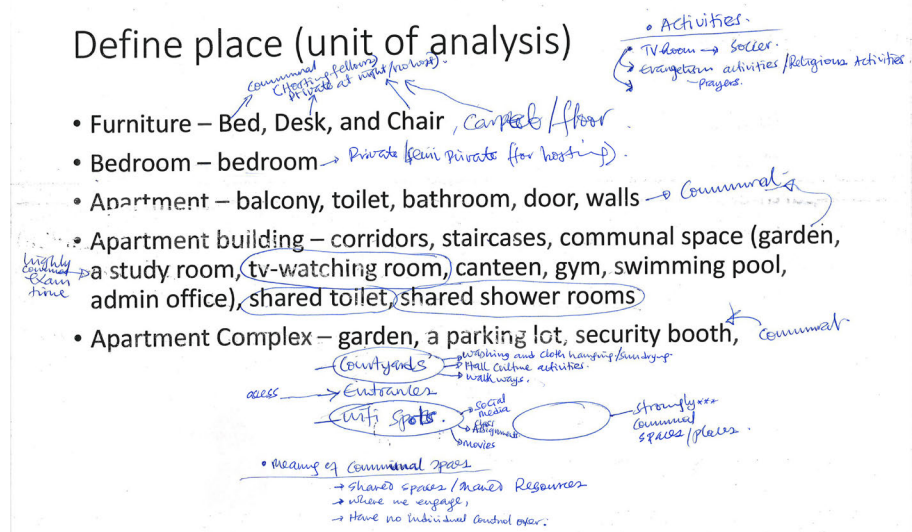 Define place (unit of analysis)
• Activities.
• TV Room → Soccer.
• Evangelism activities/Religious Activities.
- Prayers.
communal
(Hosting fellows)
Private at night/no host).
• Furniture – Bed, Desk, and Chair, Carpet/floor
• Bedroom – bedroom → Private/semi private (for hosting).
• Apartment – balcony, toilet, bathroom, door, walls → Communal
• Apartment building – corridors, staircases, communal space (garden,
a study room, tv-watching room, canteen, gym, swimming pool,
admin office), shared toilet, shared shower rooms
highly
communal
time
• Apartment Complex – garden, a parking lot, security booth, communal
Courtyards
washing and cloth hanging/sundrying.
Hall Culture activities.
Walk ways.
access → Entrances
wifi spots.
Social
media
Assignment
Movies
strongly***
communal
spaces/places.
• Meaning of Communal spaces
→ shared spaces/shared Resources
→ where we engage,
→ Have no individual control over.